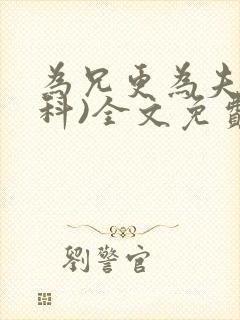 為兄更為夫
科)全文免費
劉警官